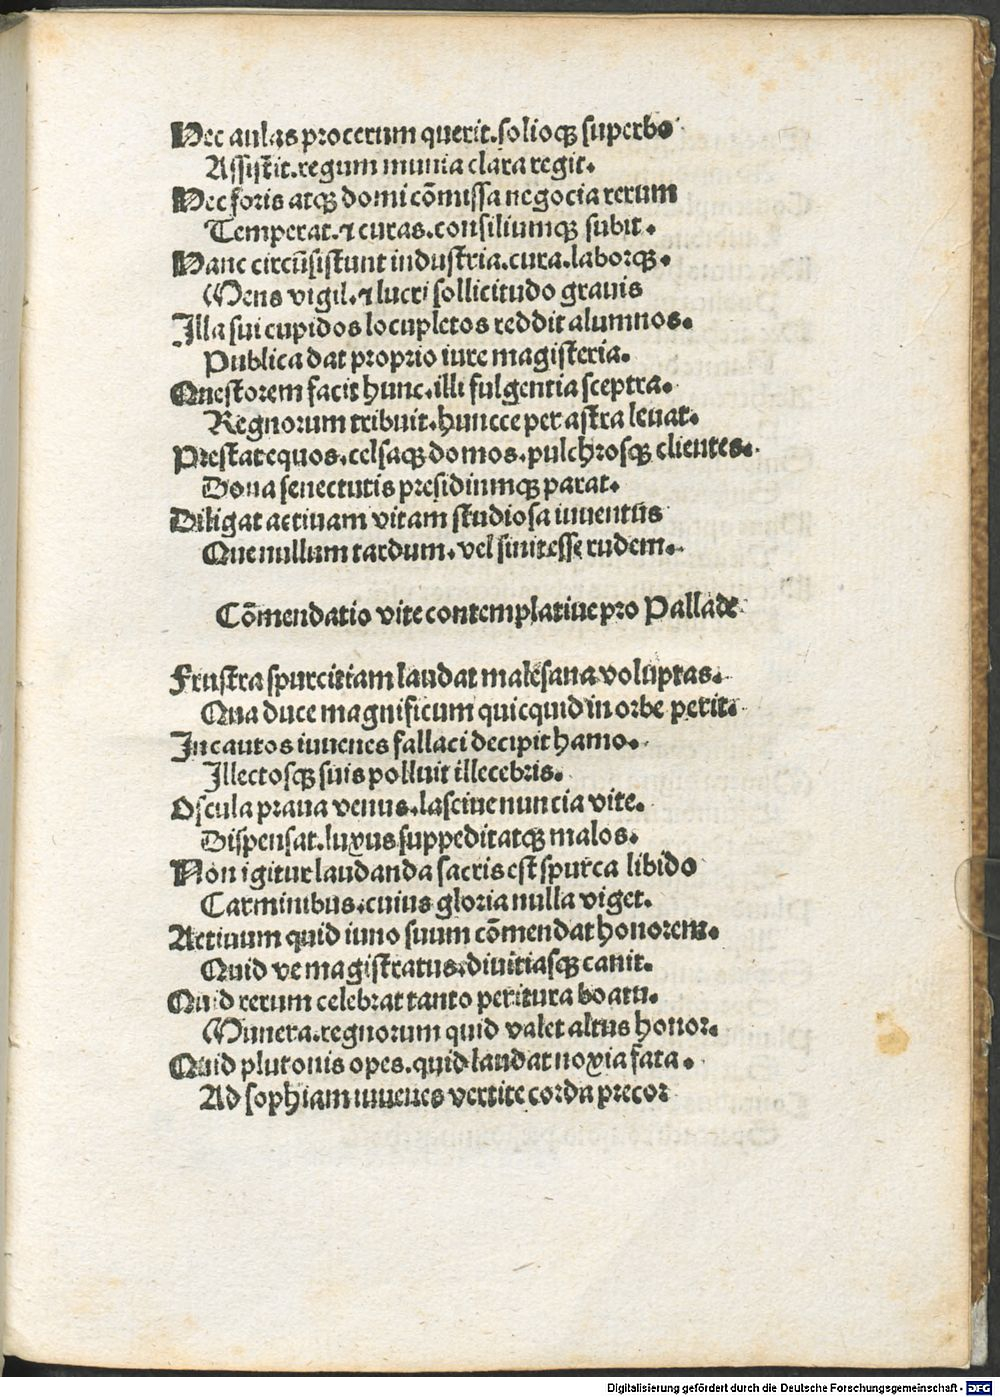 Hec aulas procerum querit.solioqꝫ superbo
Assistit.regum munia clara regit.
Hec foris atqꝫ domi cōmissa negocia rerum
Temperat.⁊ curas.consiliumqꝫ subit.
Hanc circūsistunt industria.cura.laborqꝫ.
Mens vigil.⁊ lucri sollicitudo grauis
Illa sui cupidos locupletos reddit alumnos.
Publica dat proprio iure magisteria.
Questorem facit hunc.illi fulgentia sceptra.
Regnorum tribuit.huncce per astra leuat.
Prestat equos.celsaqꝫ domos.pulchrosqꝫ clientes.
Dona senectutis presidiumqꝫ parat.
Diligat actiuam vitam studiosa iuuentus
Que nullum tardum.vel sinit esse rudem.
Cōmendatio vite contemplatiue pro Pallade
Frustra spurcitiam laudat malesana voluptas.
Qua duce magnificum quicquid in orbe perit.
Incautos iuuenes fallaci decipit hamo.
Illectosqꝫ suis polluit illecebris.
Oscula praua venus.lasciue nuncia vite.
Dispensat.luxus suppeditatqꝫ malos.
Non igitur laudanda sacris est spurca libido
Carminibus.cuius gloria nulla viget.
Actiuum quid iuno suum cōmendat honorem.
Quid ve magistratus.diuitiasqꝫ canit.
Quid rerum celebrat tanto peritura boatu.
Munera.regnorum quid valet altus honor.
Quid plutonis opes.quid laudat noxia fata.
Ad sophiam iuuenes vertite corda precor
Digitalisierung gefördert durch die Deutsche Forschungsgemeinschaft - DFG